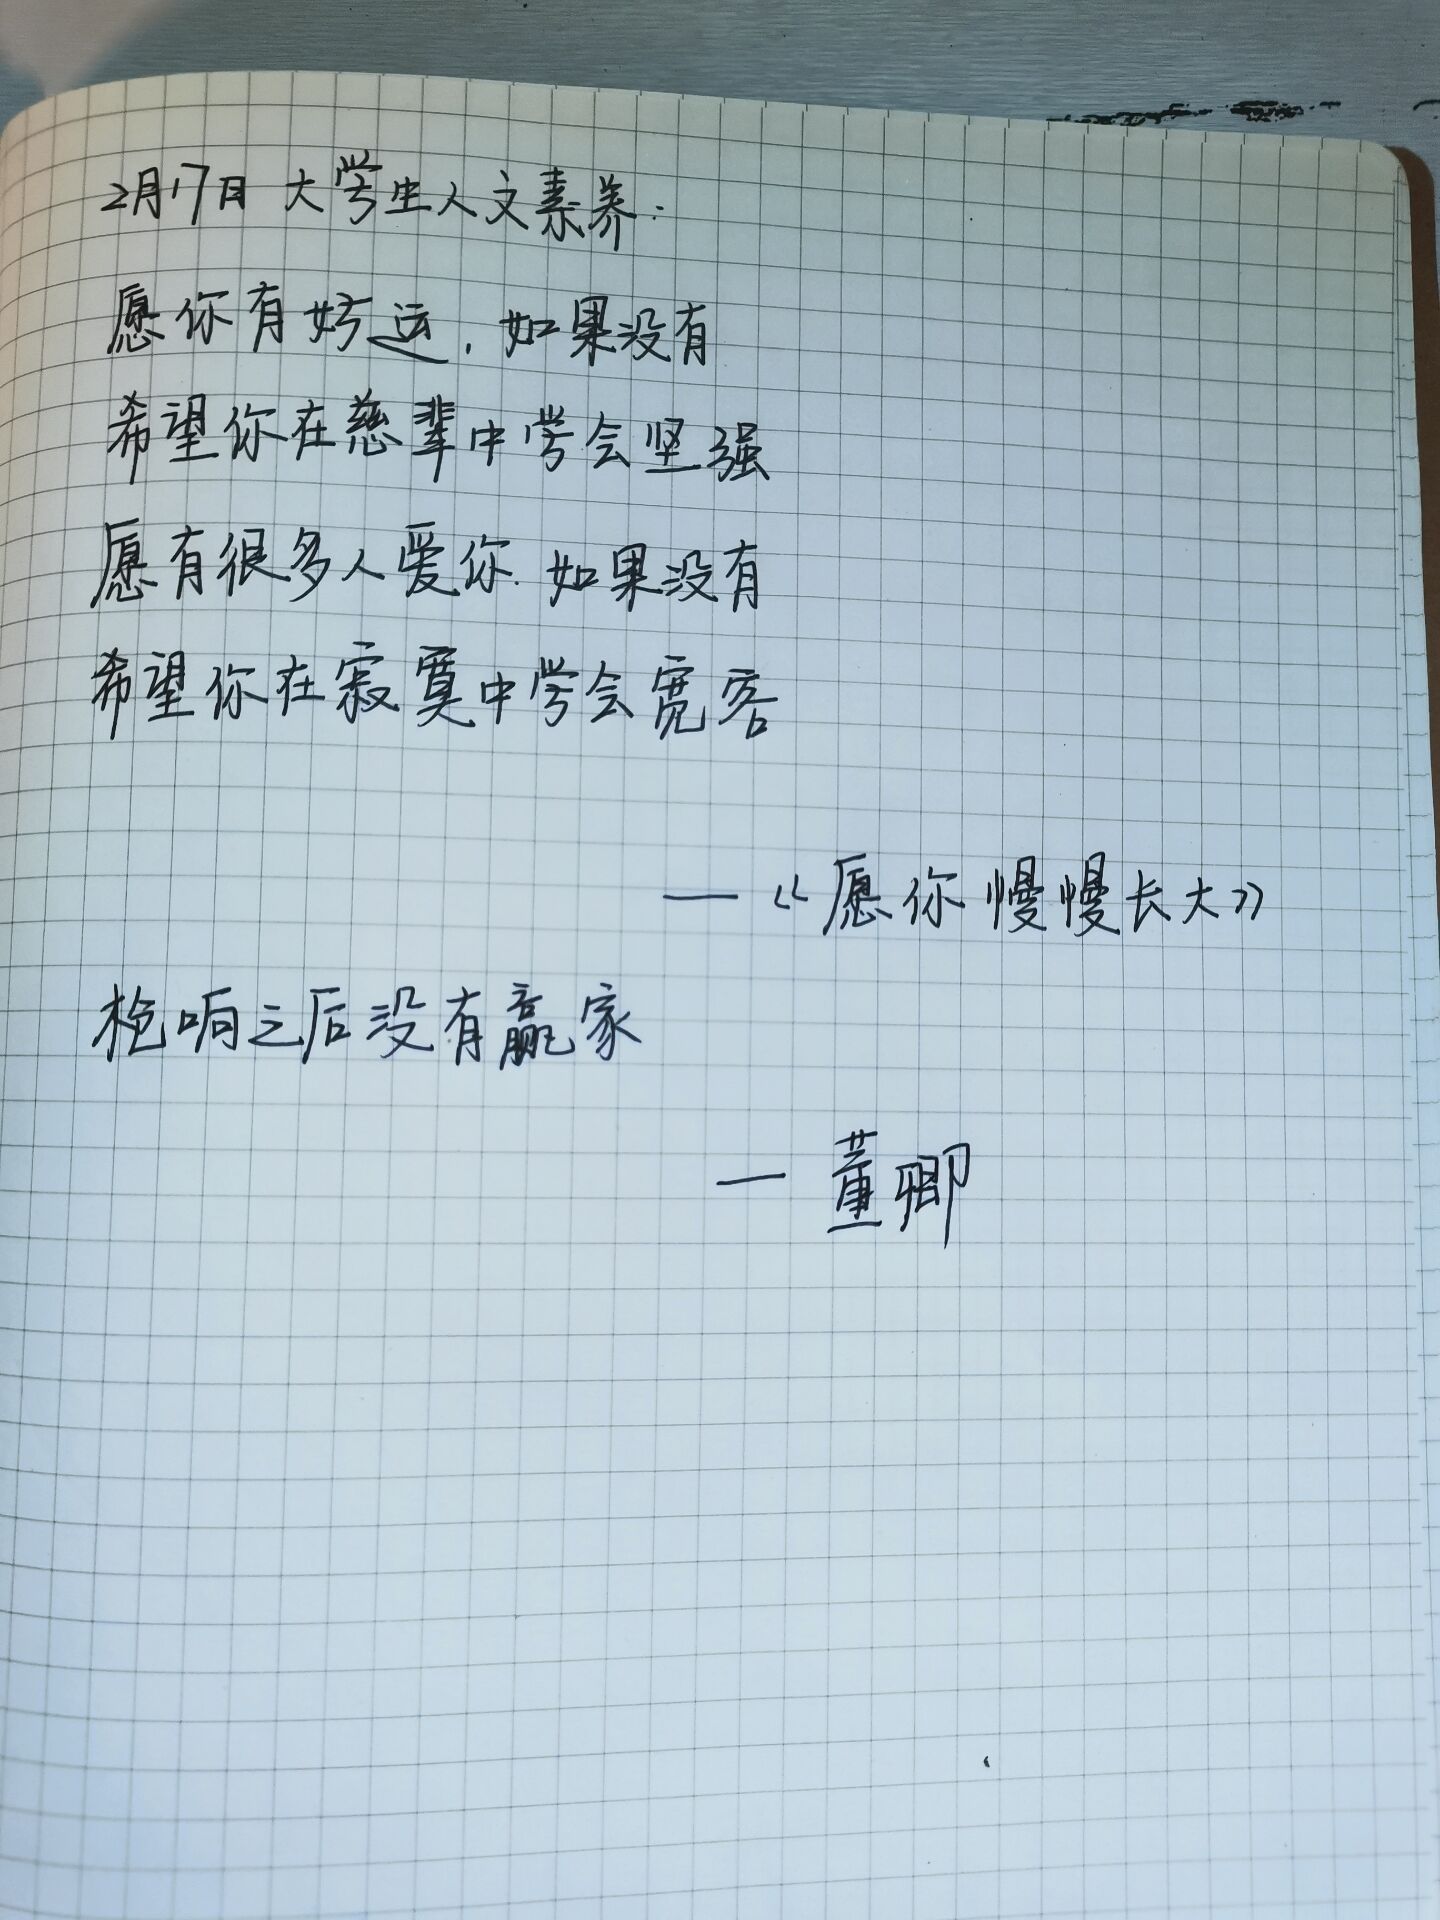 2月17日 大学生人文素养:
愿你有好运,如果没有
希望你在慈辈中学会坚强
愿有很多人爱你.如果没有
希望你在寂寞中学会宽容
—《愿你慢慢长大》
枪响之后没有赢家
—董卿